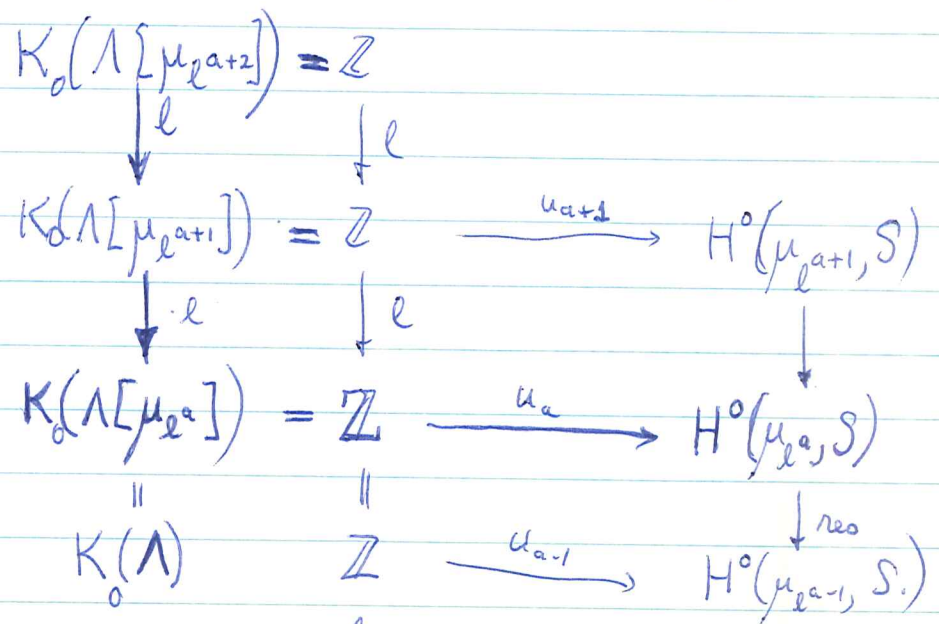 K₀(Λ[μ_{ℓ^{a+2}}]) = ℤ
↓ ℓ ↓ ℓ
K₀(Λ[μ_{ℓ^{a+1}}]) = ℤ —u_{a+1}→ H⁰(μ_{ℓ^{a+1}}, S)
↓ ·ℓ ↓ ℓ ↓
K₀(Λ[μ_{ℓ^a}]) = ℤ —u_a→ H⁰(μ_{ℓ^a}, S)
‖ ‖ ↓ res
K₀(Λ) ℤ —u_{a-1}→ H⁰(μ_{ℓ^{a-1}}, S.)